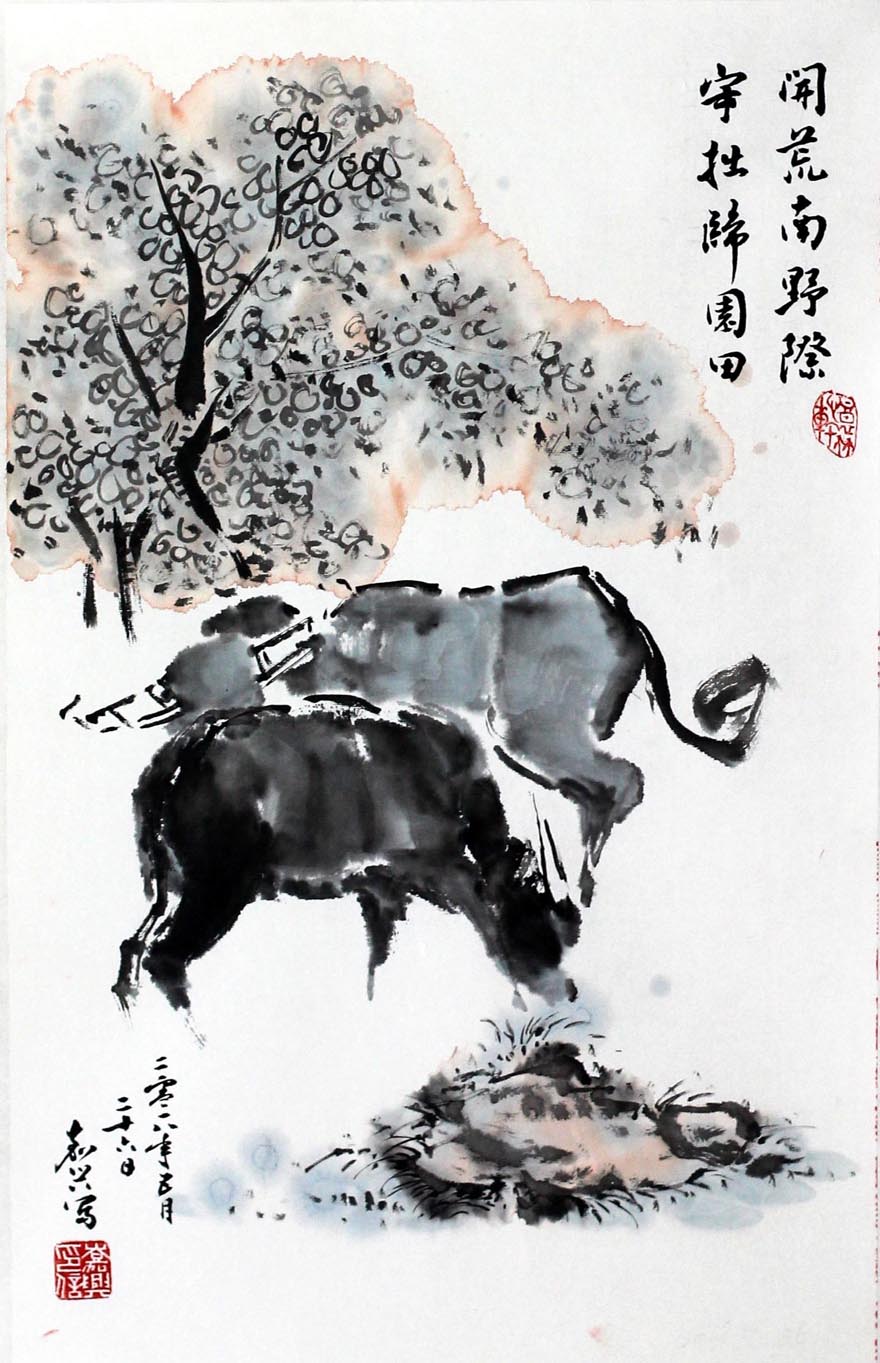 開荒南野際
守拙歸園田
二零一八年五月
二十六日
嘉兴写
嘉興
印信